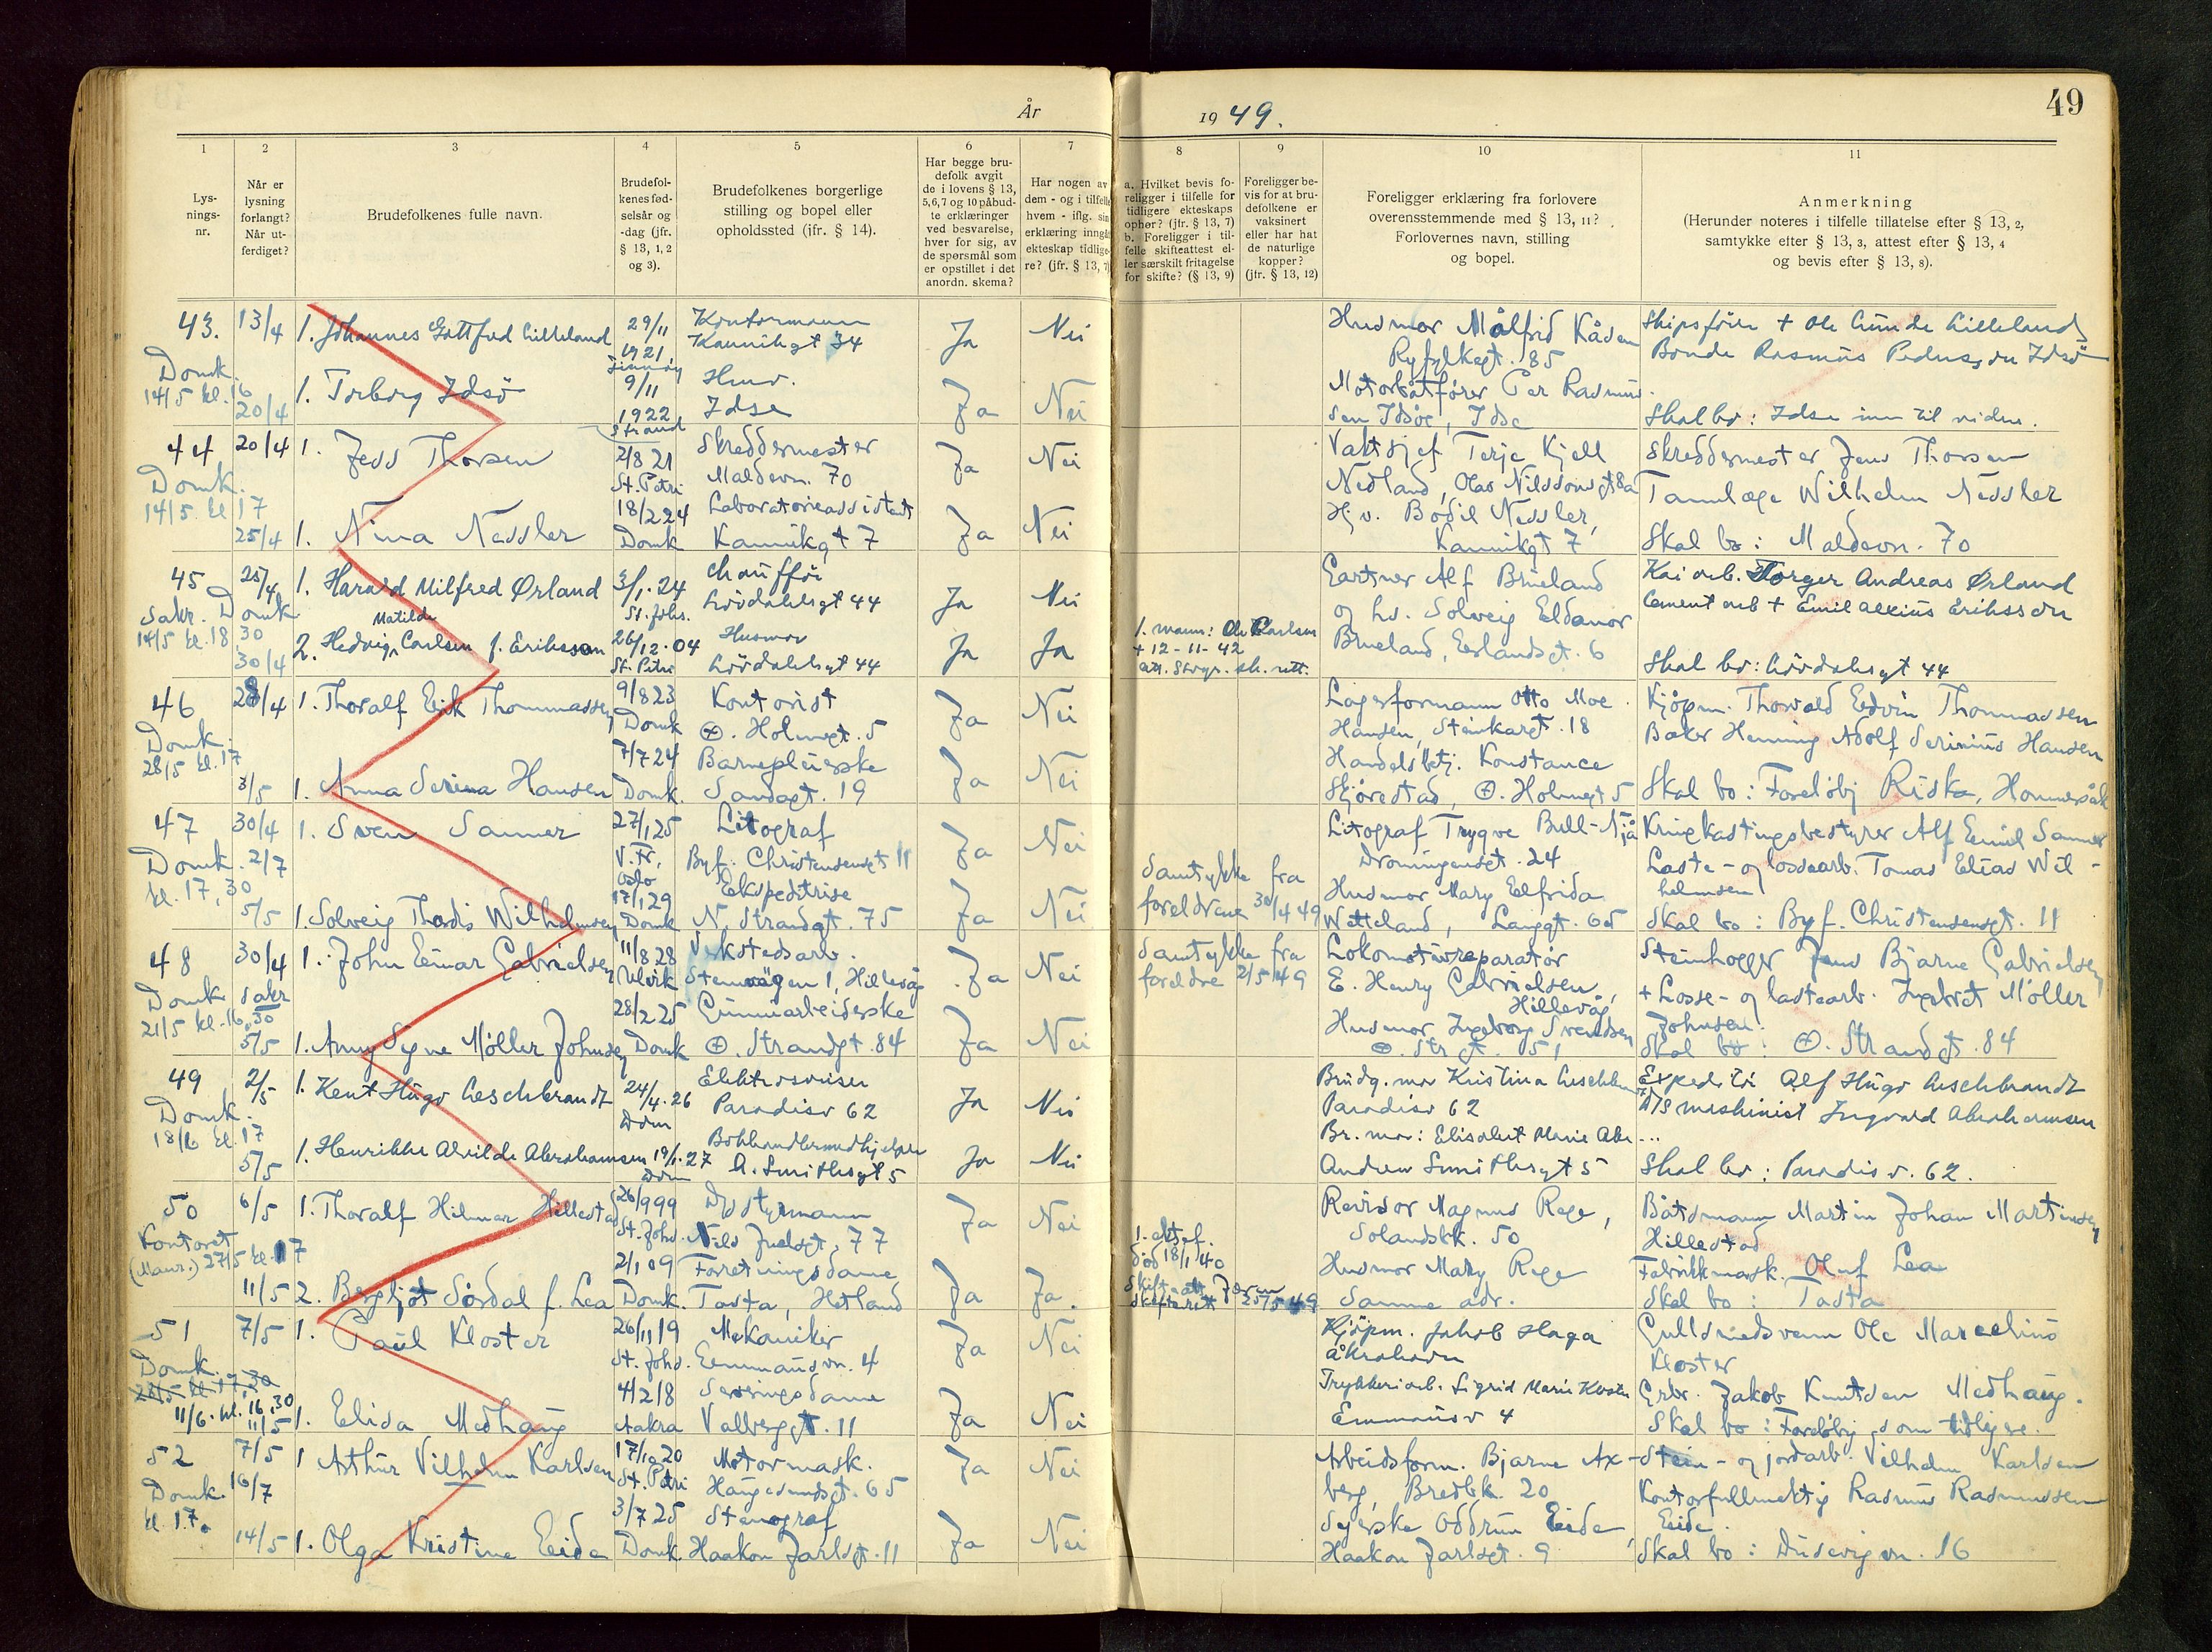 År
1949.
49
1 2 3 4 5 6 7 8 9 10 11
Lys-
nings-
nr.
Når er
lysning
forlangt?
Når ut-
ferdiget?
Brudefolkenes fulle navn.
Brudefol-
kenes fød-
selsår og
-dag (jfr.
§ 13, 1, 2
og 3).
Brudefolkenes borgerlige
stilling og bopel eller
opholdssted (jfr. § 14).
Har begge bru-
defolk avgit
de i lovens § 13,
5,6,7 og 10 påbud-
te erklæringer
ved besvarelse,
hver for sig, av
de spørsmål som
er opstillet i det
anordn. skema?
Har nogen av
dem - og i tilfelle
hvem - iflg. sin
erklæring inngått
ekteskap tidlige-
re? (jfr. § 13, 7)
a. Hvilket bevis fo-
religger i tilfelle for
tidligere ekteskaps
ophør? (jfr. § 13, 7)
b. Foreligger i til-
felle skifteattest el-
ler særskilt fritagelse
for skifte? (§ 13, 9)
Foreligger be-
vis for at bru-
defolkene er
vaksinert
eller har hat
de naturlige
kopper?
(jfr. § 13, 12)
Foreligger erklæring fra forlovere
overensstemmende med § 13, 11?
Forlovernes navn, stilling
og bopel.
Anmerkning
(Herunder noteres i tilfelle tillatelse efter § 13, 2,
samtykke efter § 13, 3, attest efter § 13, 4
og bevis efter § 13, 8).
43. 13/4 1. Johannes Gottfred Lilleland 29/11 1921 Kontormann Kannikgt 34 Ja Nei
Domk. 14/5 kl. 16
20/4 1. Torborg Idsö 9/11 1922 Strand Husv. Idse Ja Nei
Husmor Målfrid Kåden
Ryfylkegt. 85
Motorbåtfører Per Rasmus-
sen Idsøe, Idse
Skipsförer + Ole Lilleland
Bonde Rasmus Pedersen Idsö
Skal bo: Idse inn til videre.
44 20/4 1. Jess Thorsen 2/8 21 St. Petri Skreddermester Maldevn. 70 Ja Nei
Domk. 14/5. kl 17
25/4 1. Nina Nessler 18/2 24 Domk Laboratorieassistent Kannikgt 7 Ja Nei
Vaktsjef Terje Kjell
Nedland, Olav Nilssonsgt 8a
Hj. v. Bodil Nessler,
Kannikgt 7
Skreddermester Jens Thorsen
Tannlæge Wilhelm Nessler
Skal bo: Maldevn. 70
45 25/4 1. Harald Milfred Ørland 3/1. 24 St. Johs. Chauffør Lövdahlsgt 44 Ja Nei
Sakr. Domk 14/5 kl. 18,30
30/4 2. Hedvig Matilde Carlsen f. Eriksson 26/12. 04 St. Petri Husmor Lövdahlsgt 44 Ja Ja
1. mann: Carlsen
+ 12-11-42
Gartner Alf Brueland
og hv. Solveig Eldanor
Brueland, Erlandsgt. 6
Kai arb. Torger Andreas Ørland
Cement arb + Emil Alexius Eriksson
Skal bo: Lövdahlsgt 44
46 28/4 1. Thoralf Eirik Thommassen 9/8 23 Domk Kontorist Ø. Holmegt. 5 Ja Nei
Domk. 28/5 kl. 17
3/5 1. Anna Serina Hansen 7/7 24 Domk. Barnepleierske Sandagt. 19 Ja Nei
Lagerformann Otto Moe
Hansen, Steinkargt. 18
Handelsbetj. Konstance
Skjørestad, Ø. Holmegt 5
Kjöpm. Thorvald Edvin Thommassen
Baker Henning Adolf Serinius Hansen
Skal bo: Foreløbj Riska, Hommersåk
47 30/4 1. Sven Sanner 27/1 25 V. Fr., Oslo Litograf Byf. Christensensgt 11 Ja Nei
Domk. 2/7 kl. 17,30
5/5 1. Solveig Thordis Wilhelmsen 17/1 29 Domk Ekspeditrise N. Strandgt. 75 Ja Nei
Samtykke fra
foreldrene 30/4 49
Litograf Trygve Bull-Njå
Dronningensgt. 24
Husmor Mary Elfrida
Wetteland, Langgt. 65
Kringkastingsbestyrer Alf Emil Sanner
Laste- og lossearb. Tomas Elias Wil-
helmsen
Skal bo: Byf. Christensensgt. 11
48 30/4 1. John Einar Gabrielsen 11/8 28 Ulvik Verkstedsarb. Steinvägen 1, Hillevåg Ja Nei
Domk sakr 21/5 kl. 16,30
5/5 1. Anny Signe Møller Johnsen 28/2 25 Domk Gummiarbeiderske Ø. Strandgt. 84 Ja Nei
Samtykke fra
foreldre 2/5 49
Lokomotivreparatør
E. Henry Gabrielsen,
Hillevåg,
Husmor Ingeborg Svendsen
Ø. Str gt. 51
Steinhogger Jens Bjarne Gabrielsen
+ Losse- og lastearb. Ingebret Møller
Johnsen.
Skal bo: Ø. Strandgt. 84
49 2/5 1. Kent Hugo Aeschbrandt 24/4. 26 Dom Elektrosveiser Paradisv 62 Ja Nei
Domk. 18/6 kl. 17
5/5 1. Henrikke Alvilde Abrahamsen 19/1. 27 Dom Bokhandlermedhjelper A. Smithsgt 5 Ja Nei
Brudg. mor Kristina Aeschbrandt
Paradisv 62
Br. mor: Elisabet Marie Abr...
Andreas Smithsgt 5
Expeditör Alf Hugo Aeschbrandt
maskinist Ingvard Abrahamsen
Skal bo: Paradisv. 62.
50 6/5 1. Thoralf Hilmar Hillestad 26/9 99 St. Johs. Styrmann Nils Juelsgt. 77 Ja Nei
Kontoret (Manr.) 27/5 kl 17
11/5 2. Bergljot Sørdal f. Lea 2/1 09 Domk. Forretningsdame, Tasta, Hetland Ja Ja.
1. ektef.
død 18/1 40
Skift. att. Jæren
skifterett 25/5 49
Revisor Magnus Rege,
Solandsbk. 50
Husmor Mary Rege
Samme adr.
Båtsmann Martin Johan Martinsen
Hillestad
Fabrikkmask. Oluf Lea
Skal bo: Tasta
51 7/5 1. Paul Kloster 26/11 19 St. Johs. Mekaniker Emmausvn. 4 Ja Nei
Domk. 28/5 kl 17,30
11/6. kl. 16,30
11/5 1. Elida Medhaug 4/2 18 Aakra Serveringsdame Valberggt. 11 Ja Nei
Kjöpm. Jakob Haga
Åkrahavn
Trykkeriarb. Sigrid Marie Kloster
Emmausv 4
Gullsmedsvenn Ole Marcelius
Kloster
Grbr. Jakob Knutsen Medhaug.
Skal bo: Foreløbig som tidligere.
52 7/5 1 Arthur Vilhelm Karlsen 17/10 20 St. Petri Motormask. Haugesundsgt. 65 Ja Nei
Domk. 16/7 kl. 17.
14/5 1. Olga Kristine Eide 3/7 25 Domk. Stenograf Haakon Jarlsgt. 11 Ja Nei
Arbeidsform. Bjarne Ax-
berg, Bredbk. 20
Syerske Oddrun Eide,
Haakon Jarlsgt. 9
Stein- og jordarb. Vilhelm Karlsen
Kontorfullmektig Rasmus Rasmussen
Eide.
Skal bo: Dusevigvn. 16